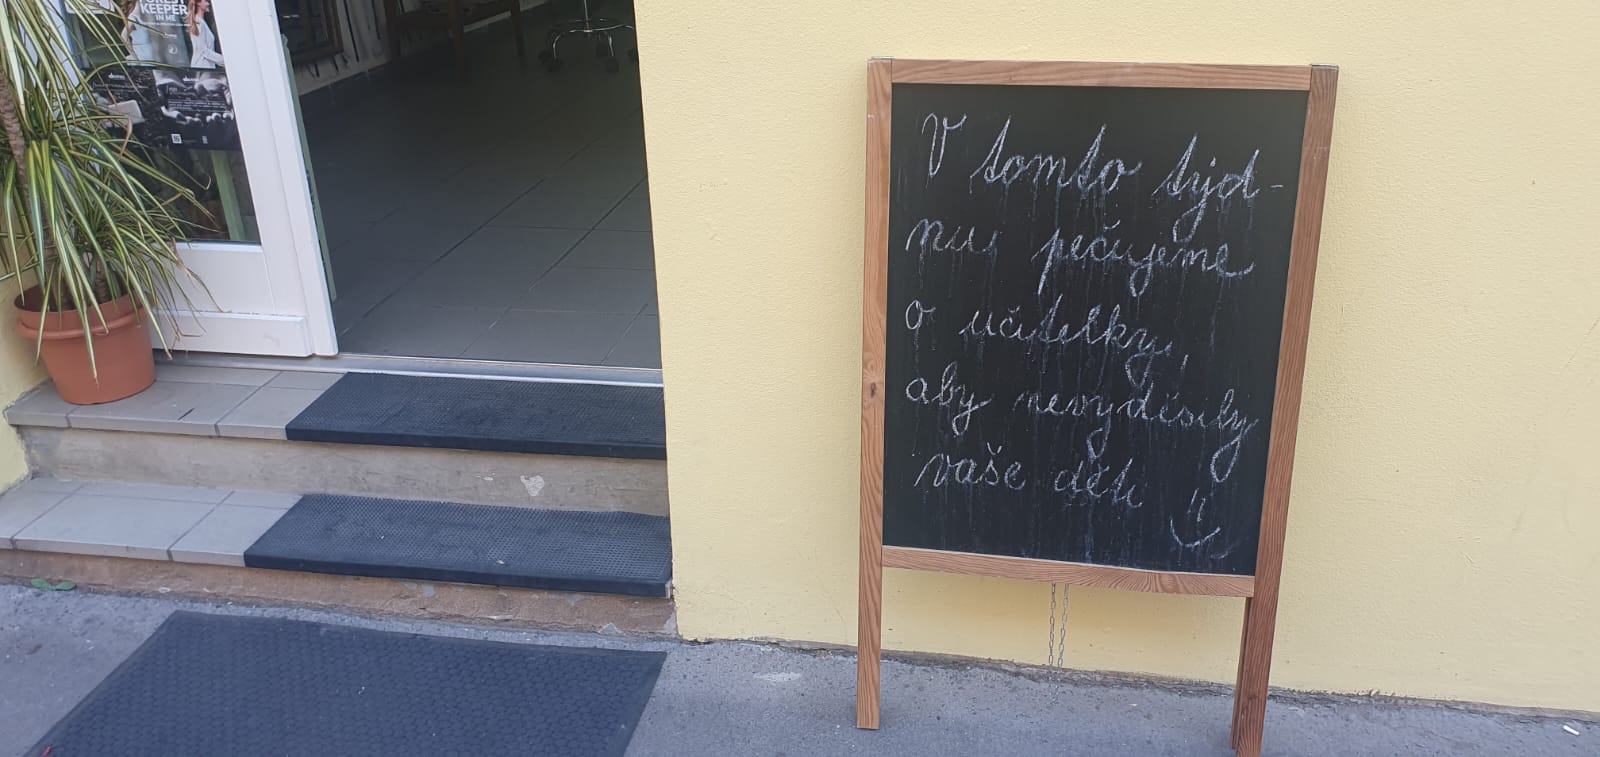 FOREST
KEEPER
IN ME
V tomto týd-
nu pečujeme
o učitelky,
aby nevyděsily
vaše děti